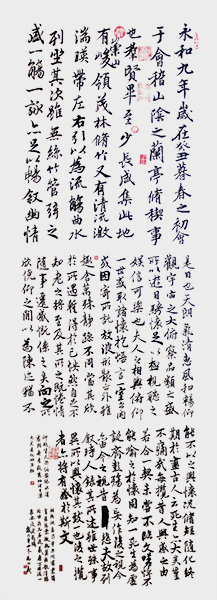 永和九年歲在癸丑暮春之初會
于會稽山陰之蘭亭脩稧事
也群賢畢至少長咸集此地
崇山
有峻領茂林脩竹又有清流激
湍暎帶左右引以為流觴曲水
列坐其次雖無絲竹管弦之
盛一觴一詠亦足以暢叙幽情
是日也天朗氣清惠風和暢仰
觀宇宙之大俯察品類之盛
所以遊目騁懷足以極視聽之
娛信可樂也夫人之相與俯仰
一世或取諸懷抱悟言一室之內
或因寄所託放浪形骸之外雖
趣舍萬殊靜躁不同當其欣
於所遇蹔得於己快然自足不
知老之將至及其所之既惓情
隨事遷感慨係之矣向之所
欣俛仰之閒以為陳迹猶不
能不以之興懷況脩短隨化終
期於盡古人云死生亦大矣豈
不痛哉每攬昔人興感之由
若合一契未嘗不臨文嗟悼不
能喻之於懷固知一死生為虛
誕齊彭殤為妄作後之視今
亦由今之視昔悲夫故列
叙時人錄其所述雖世殊事
異所以興懷其致一也後之攬
者亦將有感於斯文